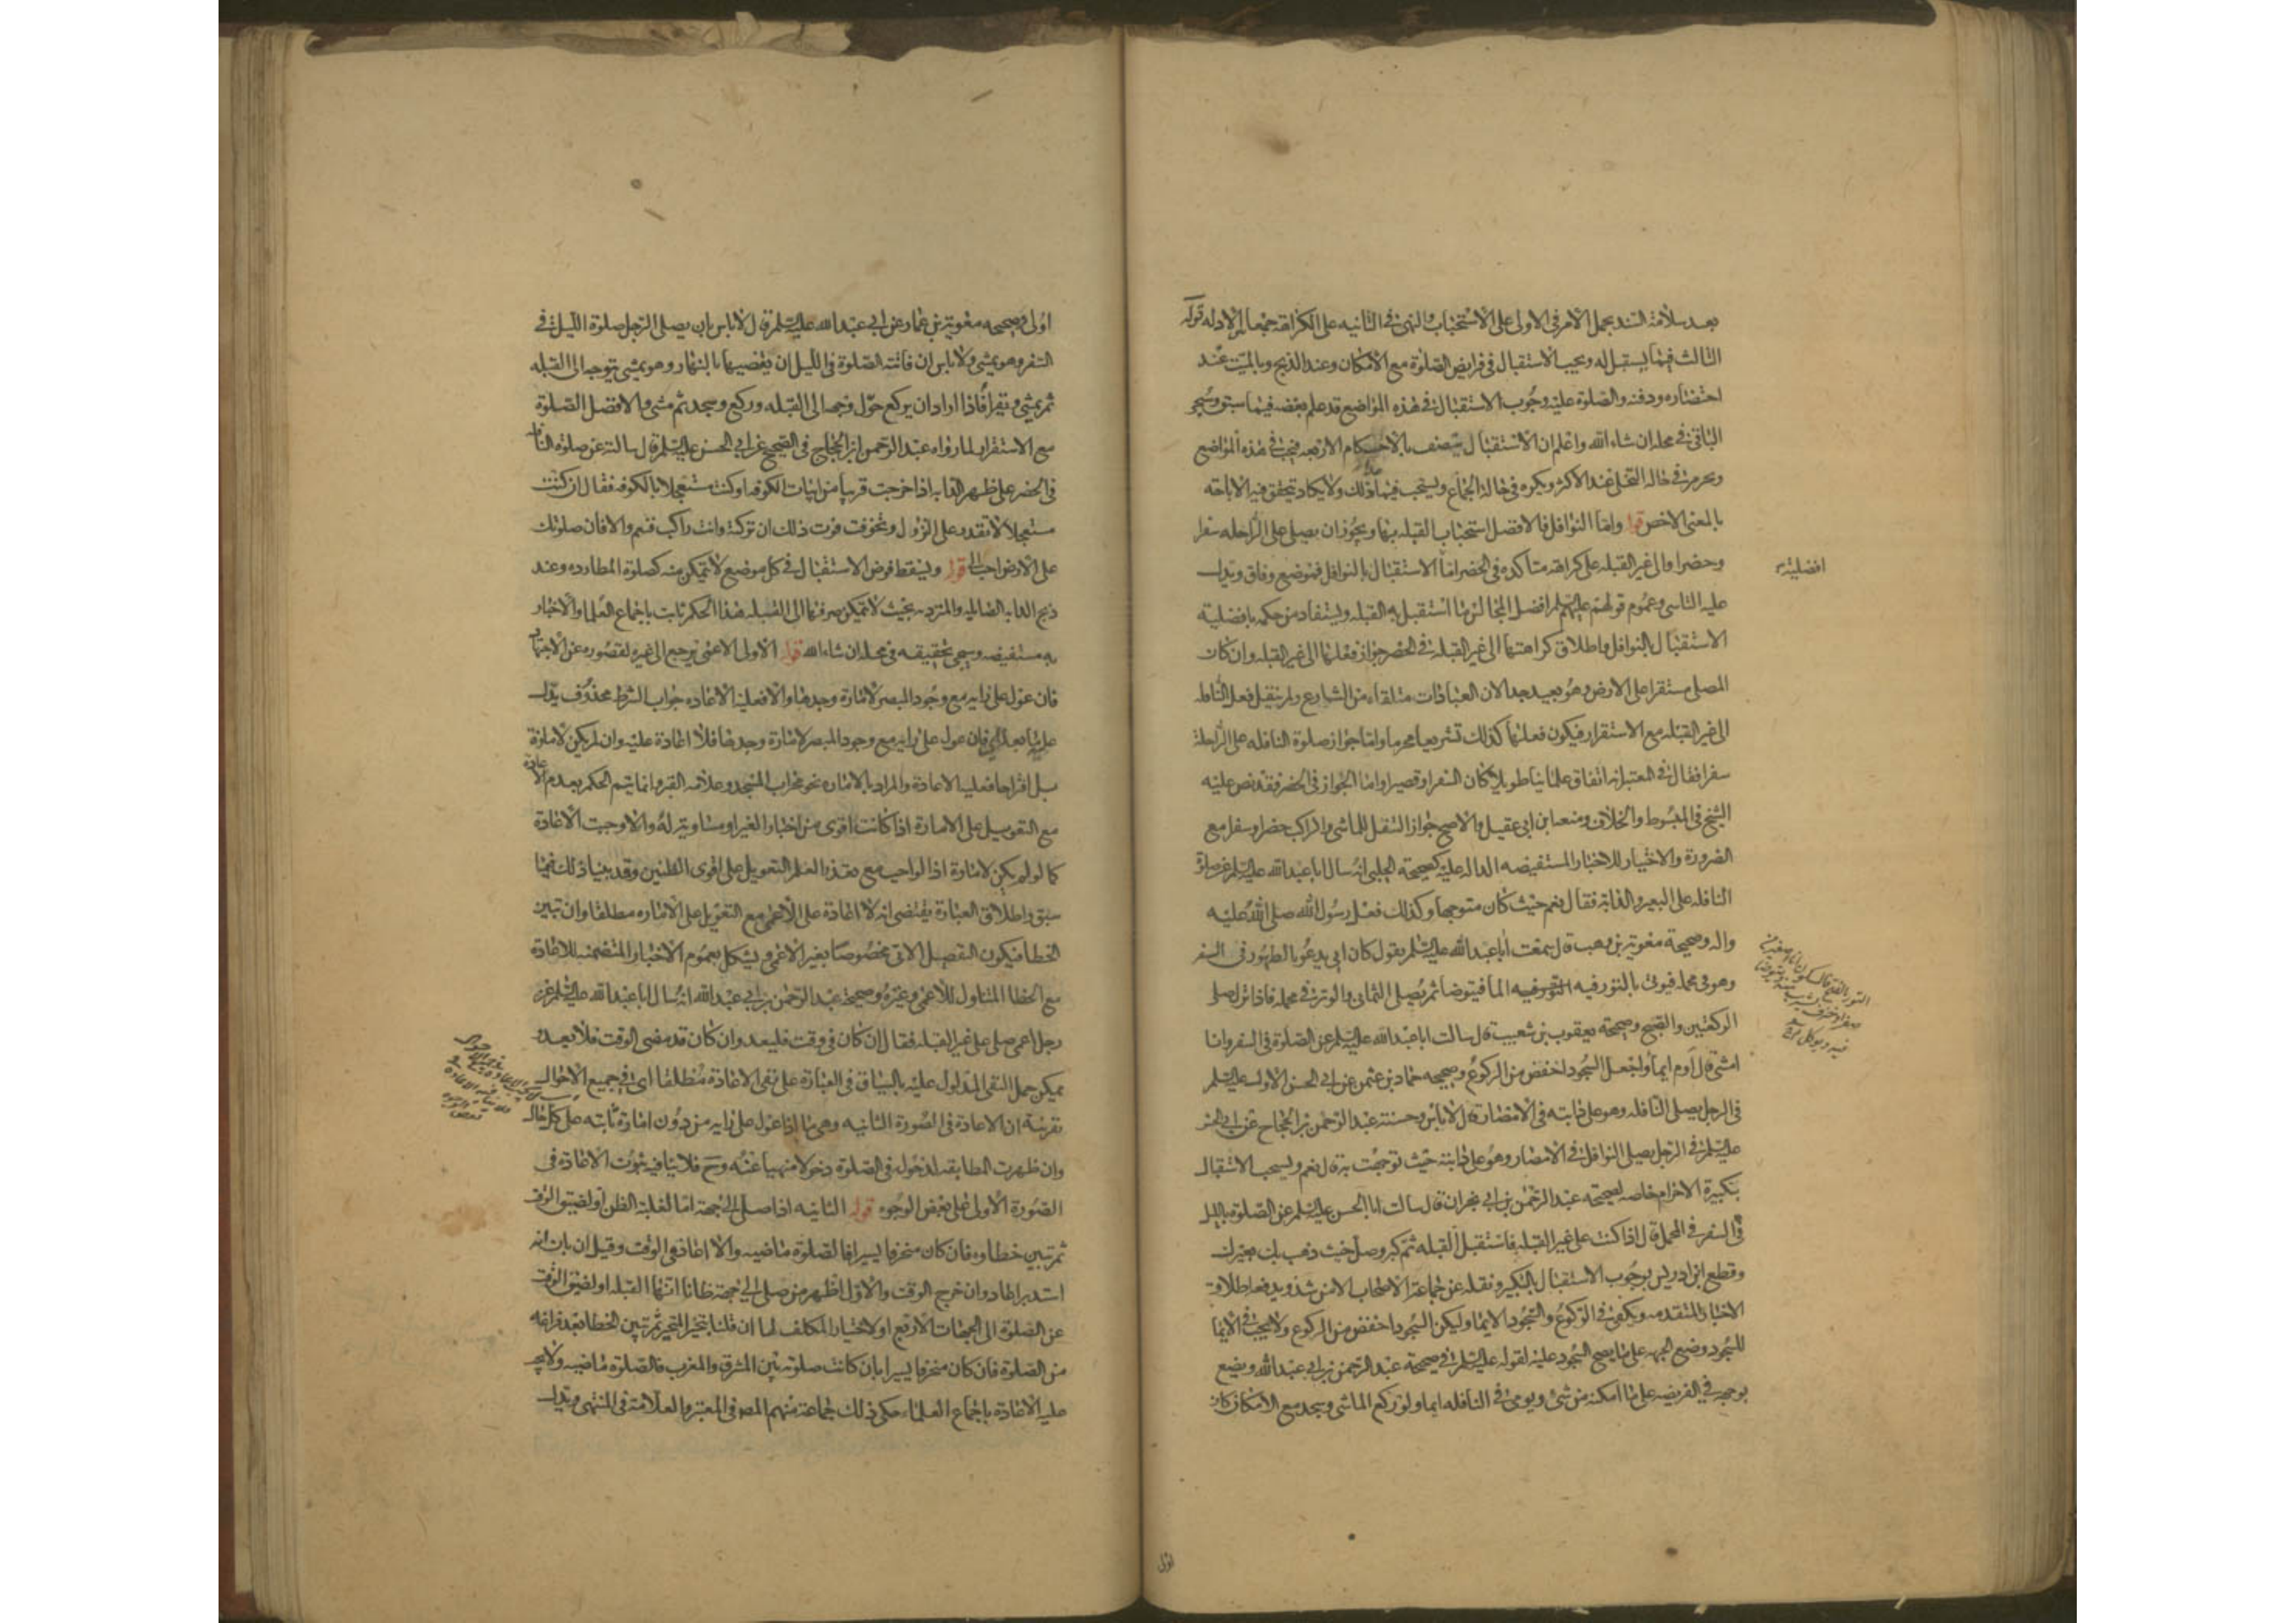 بعد سلامة السند بحمل الامر فى الاولى على الاستحباب والنهى فى الثانيه على الكراهة جمعا بين الادله قوله
الثالث فيما يستقبل له ويجب الاستقبال فى فرايض الصلوة مع الامكان وعند الذبح وبالميت عند
احتضاره ودفنه والصلوة عليه وجوب الاستقبال فى هذه المواضع قد علم بعضه فيما سبق وسيجى
الباقى فى محله ان شاء الله واعلم ان الاستقبال يتصف بالاحكام الاربعه فيجب فى هذه المواضع
ويحرم فى حالة التخلى عند الاكثر ويكره فى حالة الجماع ويستحب فيما عدا ذلك ولا يكاد يتحقق فيه الاباحة
بالمعنى الاخص قوله واما النوافل فالافضل استحباب القبله بها ويجوز ان يصلى على الراحله سفرا
وحضرا والى غير القبله على كراهة متأكده فى الحضر اما الاستقبال بالنوافل فموضع وفاق ويدل
افضلية
عليه التاسى وعموم قولهم عليهم السلم افضل المجالس ما استقبل به القبله ويستفاد من حكمه بافضلية
الاستقبال بالنوافل واطلاق كراهتها الى غير القبلة فى الحضر جواز فعلها الى غير القبله وان كان
المصلى مستقرا على الارض وهو بعيد جدا لان العبادات متلقاة من الشارع ولم ينقل فعل النافلة
الى غير القبلة مع الاستقرار فيكون فعلها كذلك تشريعا محرما واما جواز صلوة النافله على الراحلة
سفرا فقال فى المعتبر انه اتفاق علمائنا طويلا كان السفر او قصيرا واما الجواز فى الحضر فقد نص عليه
الشيخ فى المبسوط والخلاف ومنعه ابن ابى عقيل والاصح جواز التنفل للماشى والراكب حضرا وسفرا مع
الضرورة والاختيار للاخبار المستفيضه الداله عليه كصحيحة الحلبى انه سال ابا عبد الله عليه السلم عن صلوة
النافله على البعير والدابة فقال نعم حيث كان متوجها وكذلك فعل رسول الله صلى الله عليه
واله وصحيحة معوية بن وهب قال سمعت ابا عبد الله عليه السلم يقول كان ابى يدعو بالطهور فى السفر
وهو فى محمله فيوتى بالتور فيه الماء فيتوضا ثم يصلى الثمانى والوتر فى محمله فاذا نزل صلى
الركعتين والصبح وصحيحة يعقوب بن شعيب قال سالت ابا عبد الله عليه السلم عن الصلوة فى السفر وانا
امشى قال اوم ايماء واجعل السجود اخفض من الركوع وصحيحه حماد بن عثمن عن ابى الحسن الاول عليه السلم
فى الرجل يصلى النافله وهو على دابته فى الامصار قال لا باس وحسنة عبد الرحمن بن الحجاج عن ابى الحسن
عليه السلم فى الرجل يصلى النوافل فى الامصار وهو على دابته حيث توجهت به قال نعم ويستحب الاستقبال
بتكبيرة الاحرام خاصه لصحيحة عبد الرحمن بن ابى نجران قال سالت ابا الحسن عليه السلم عن الصلوة بالليل
فى السفر فى المحمل قال اذا كنت على غير القبله فاستقبل القبله ثم كبر وصل حيث ذهب بك بعيرك
وقطع ابن ادريس بوجوب الاستقبال بالتكبير ونقله عن جماعة الاصحاب الا من شذ ويدفعه اطلاق
الاخبار المتقدمه ويكفى فى الركوع والسجود الايماء وليكن السجود اخفض من الركوع ولا يجب فى الايماء
للسجود وضع الجبهه على ما يصح السجود عليه لقوله عليه السلم فى صحيحة عبد الرحمن بن ابى عبد الله ويضع
بوجهه فى الفريضه على ما امكنه من شئ ويومئ فى النافله ايماء ولو ركع الماشى وسجد مع الامكان كان
اولى
اولى وصحيحه معوية بن عمار عن ابى عبد الله عليه السلم قال لا باس بان يصلى الرجل صلوة الليل فى
السفر وهو يمشى ولا باس ان فاتته الصلوة فى الليل ان يقضيها بالنهار وهو يمشى يتوجه الى القبله
ثم يمشى ويقرأ فاذا اراد ان يركع حول وجهه الى القبله وركع وسجد ثم مشى والافضل الصلوة
مع الاستقرار لما رواه عبد الرحمن ابن الحجاج فى الصحيح عن ابى الحسن عليه السلم قال سالته عن صلوة النافلة
فى الحضر على ظهر الدابه اذا خرجت قريبا من ابيات الكوفه او كنت مستعجلا بالكوفه فقال ان كنت
مستعجلا لا تقدر على النزول وتخوفت فوت ذلك ان تركته وانت راكب فنعم والا فان صلوتك
على الارض احب الى قوله ويسقط فرض الاستقبال فى كل موضع لا يتمكن منه كصلوة المطارده وعند
ذبح الدابه الصائله والمتردية بحيث لا يتمكن صرفها الى القبله هذا الحكم ثابت باجماع العلماء والاخبار
به مستفيضه وسيجى تحقيقه فى محله ان شاء الله قوله الاولى الاعمى يرجع الى غيره لقصوره عن الاجتهاد
فان عول على رايه مع وجود المبصر لامارة وجدها والا فعليه الاعاده جواب الشرط محذوف يدل
عليه ما بعده اى فان عول على رايه مع وجود المبصر لامارة وجدها فلا اعادة عليه وان لم يكن لامارة
بل اقتراحا فعليه الاعادة والمراد بالاماره نحو محراب المسجد وعلامه القبر وانما يتم الحكم بعدم الاعادة
مع التعويل على الامارة اذا كانت اقوى من اخبار الغير او مساوية له والا وجبت الاعادة
كما لو لم يكن لامارة اذ الواجب مع فقد العلم التعويل على اقوى الظنين وقد بينا ذلك فيما
سبق واطلاق العبارة يقتضى انه لا اعادة على الاعمى مع التعويل على الاماره مطلقا وان تبين
الخطا فيكون التفصيل الاتى مخصوصا بغير الاعمى ويشكل بعموم الاخبار المتضمنه للاعادة
مع الخطا المتناول للاعمى وغيره وصحيحة عبد الرحمن بن ابى عبد الله انه سال ابا عبد الله عليه السلم عن
رجل اعمى صلى على غير القبله فقال ان كان فى وقت فليعد وان كان قد مضى الوقت فلا يعد و
يمكن حمل النفى المدلول عليه بالسياق فى العبارة على نفى الاعادة مطلقا اى فى جميع الاحوال
بقرينة ان الاعادة فى الصورة الثانيه وهى ما اذا عول على رايه من دون امارة ثابته على كل حال
وان ظهرت المطابقه لدخوله فى الصلوة دخولا منهيا عنه وح فلا ينافيه ثبوت الاعادة فى
الصورة الاولى على بعض الوجوه قوله الثانيه اذا صلى الى جهة اما لغلبة الظن او لضيق الوقت
ثم تبين خطاوه فان كان منحرفا يسيرا فالصلوة ماضيه والا اعاد فى الوقت وقيل ان بان انه
استدبر اعاد وان خرج الوقت والاول اظهر من صلى الى جهة ظانا انها القبله او لضيق الوقت
عن الصلوة الى الجهات الاربع او لاختيار المكلف لها ان قلنا بتخير المتحير ثم تبين الخطا بعد فراغه
من الصلوة فان كان منحرفا يسيرا بان كانت صلوته بين المشرق والمغرب فالصلوة ماضيه ولا يجب
عليه الاعادة باجماع العلماء حكى ذلك جماعة منهم المصـ فى المعتبر والعلامة فى المنتهى ويدل